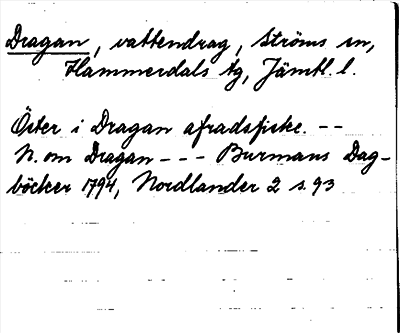 Dragan, vattendrag, Ströms sn,
Hammerdals tg, Jämtl. l.
Öster i Dragan afradsfiske. --
N. om Dragan --- Burmans Dag-
böcker 1794, Nordlander 2 s. 93